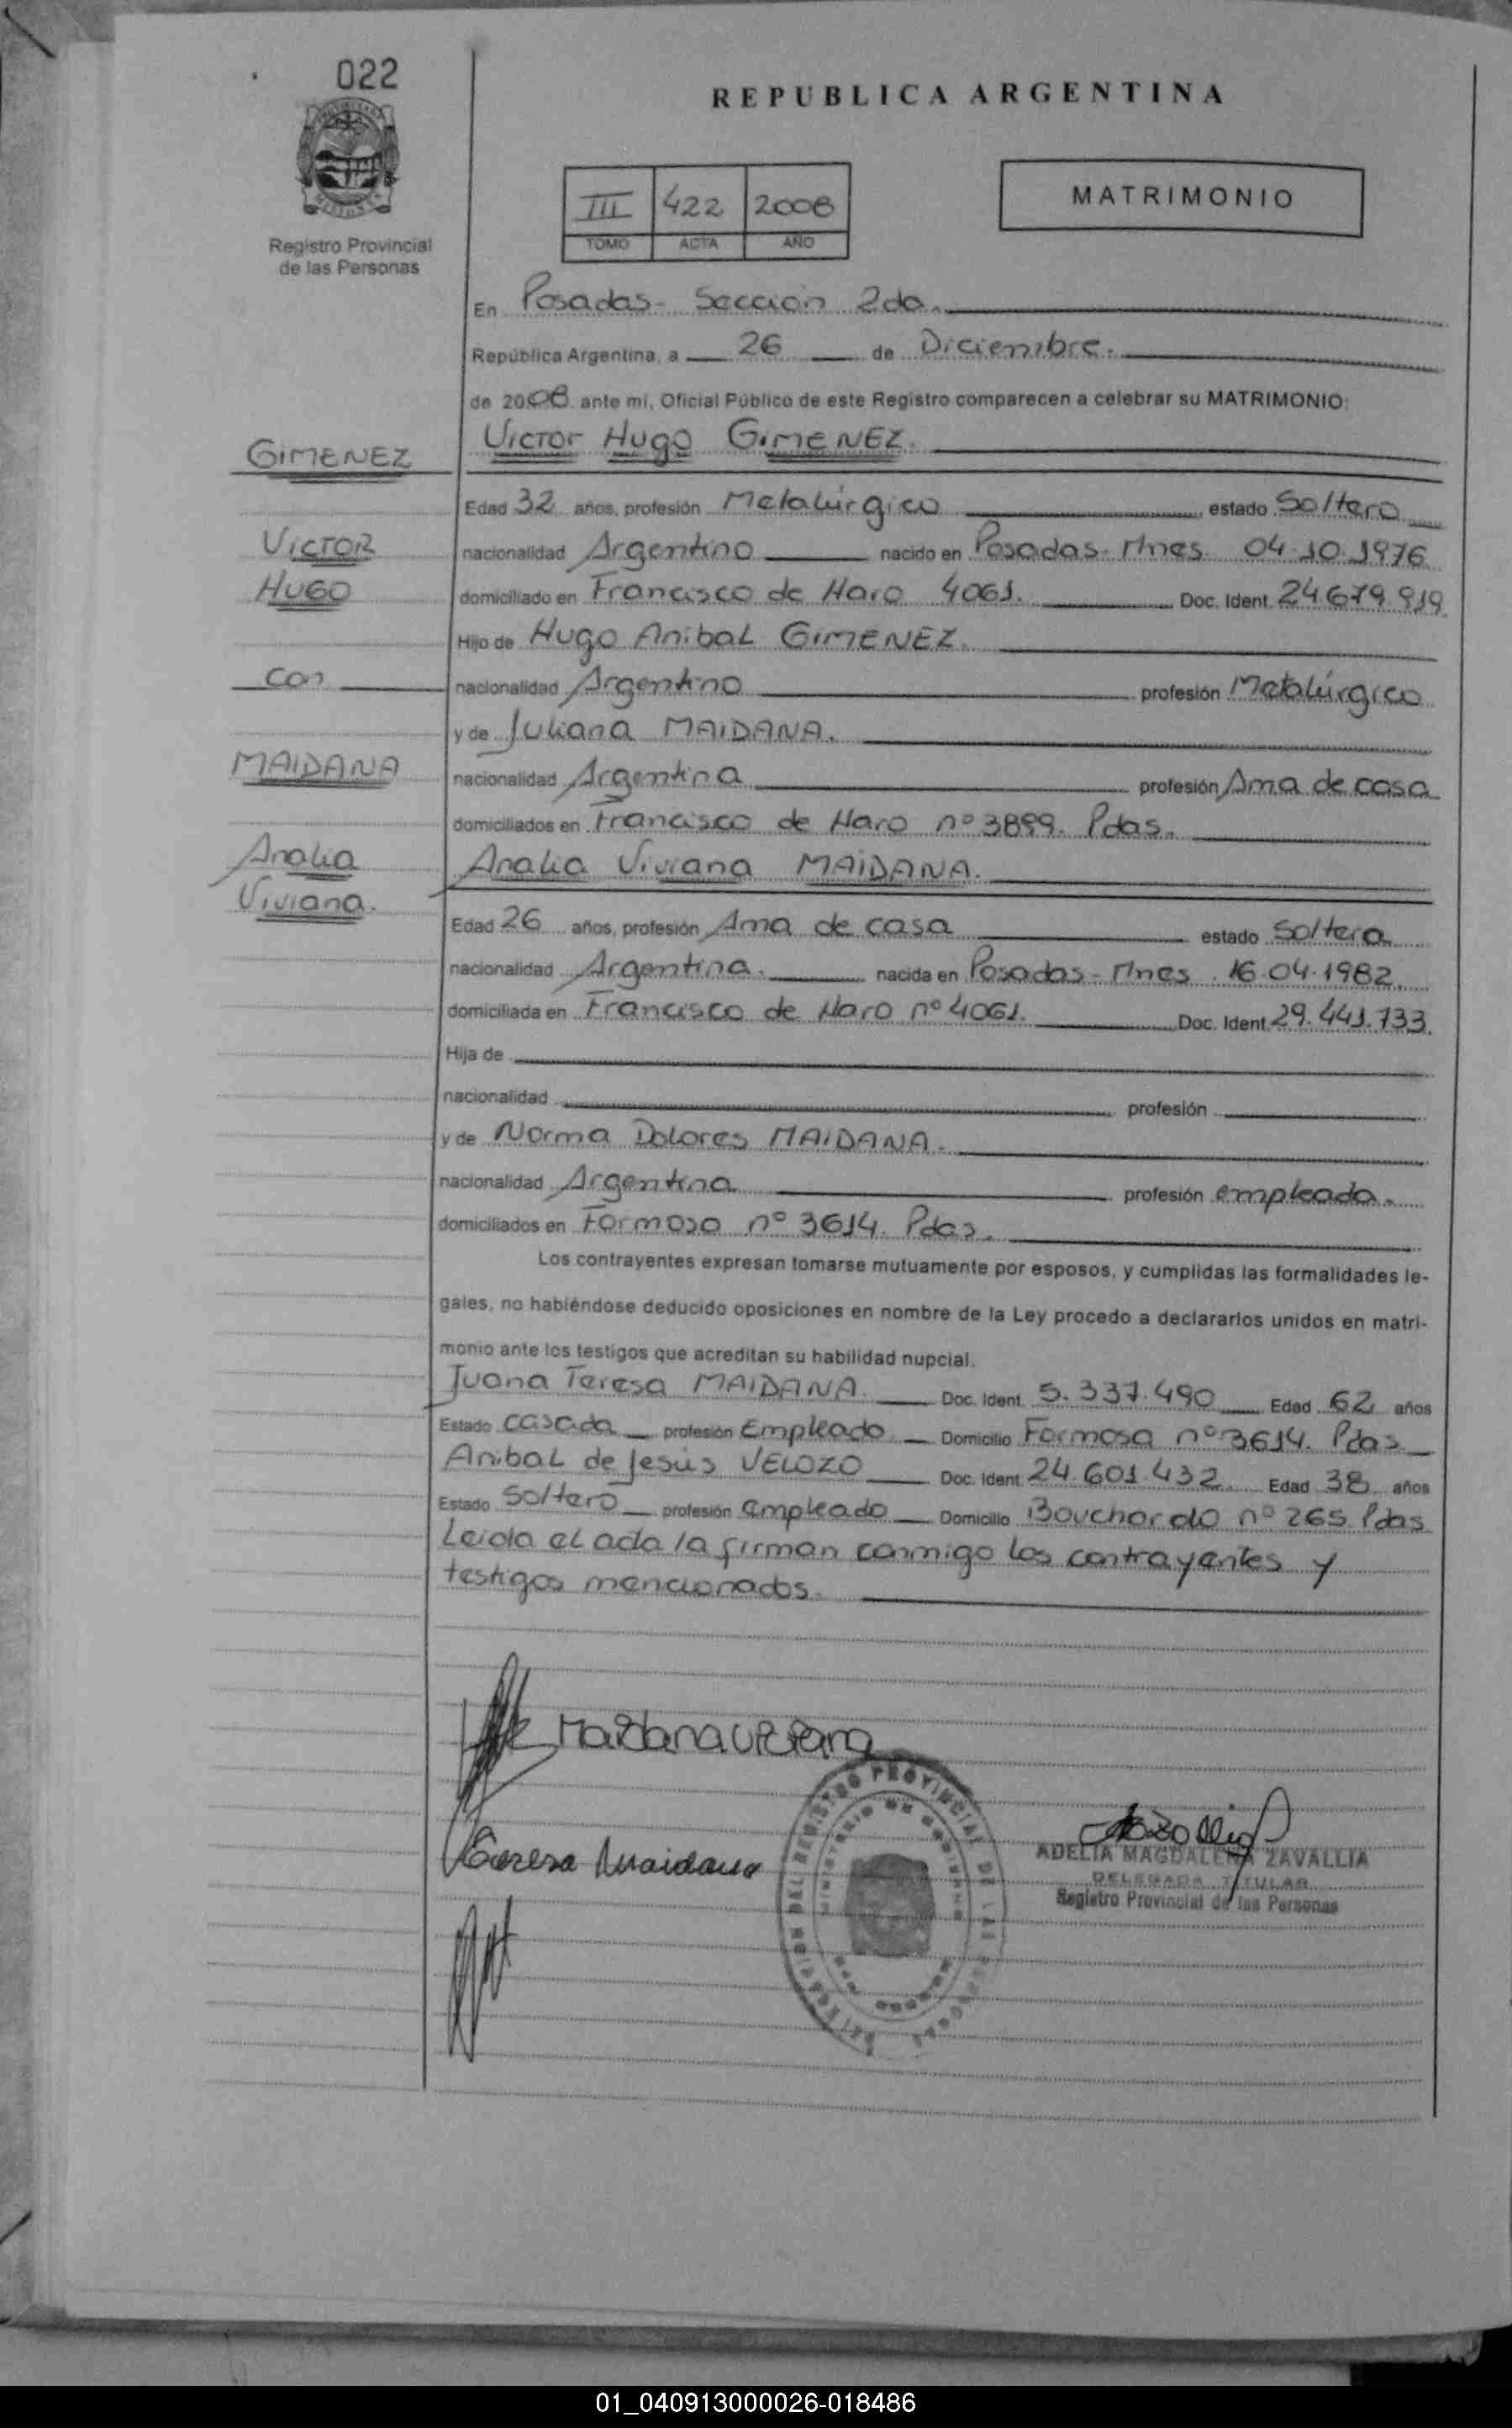 022
REPUBLICA ARGENTINA
III 422 2008
TOMO ACTA AÑO
MATRIMONIO
Registro Provincial
de las Personas
En Posadas- Sección 2da.
República Argentina, a 26 de Diciembre.
de 2008 ante mí, Oficial Público de este Registro comparecen a celebrar su MATRIMONIO:
GIMENEZ
Victor Hugo GIMENEZ.
Edad 32 años, profesión Metalúrgico estado Soltero
VICTOR
nacionalidad Argentino nacido en Posadas- Mnes. 04.10.1976
HUGO
domiciliado en Francisco de Haro 4061. Doc. Ident. 24.679.919
Hijo de Hugo Anibal GIMENEZ.
con
nacionalidad Argentino profesión Metalúrgico
y de Juliana MAIDANA.
MAIDANA
nacionalidad Argentina profesión Ama de casa
domiciliados en Francisco de Haro nº 3899. Pdas.
Analia
Analia Viviana MAIDANA.
Viviana.
Edad 26 años, profesión Ama de casa estado Soltera
nacionalidad Argentina. nacida en Posadas- Mnes. 16.04.1982.
domiciliada en Francisco de Haro nº 4061. Doc. Ident. 29.441.733.
Hija de
nacionalidad profesión
y de Norma Dolores MAIDANA.
nacionalidad Argentina profesión empleada.
domiciliados en Formosa nº 3614. Pdas.
Los contrayentes expresan tomarse mutuamente por esposos, y cumplidas las formalidades le-
gales, no habiéndose deducido oposiciones en nombre de la Ley procedo a declararlos unidos en matri-
monio ante los testigos que acreditan su habilidad nupcial.
Juana Teresa MAIDANA. Doc. Ident. 5.337.490 Edad 62 años
Estado casada profesión Empleado Domicilio Formosa nº 3614. Pdas
Anibal de Jesús VELOZO Doc. Ident. 24.601.432. Edad 38 años
Estado Soltero profesión empleado Domicilio Bouchardo nº 265 Pdas
Leida el acta la firman conmigo los contrayentes y
testigos mencionados.
Maidana Viviana
Teresa Maidana
ADELIA MAGDALENA ZAVALLIA
DELEGADA TITULAR
Registro Provincial de las Personas
REGISTRO PROVINCIAL DE LAS
MINISTERIO DE GOBIERNO
01_040913000026-018486